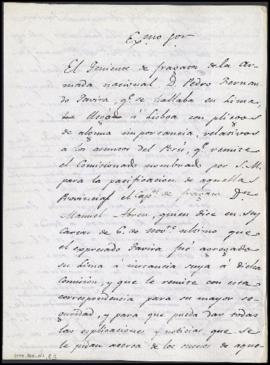 Exmo Sor
El Teniente de fragata de la Ar-
mada nacional D. Pedro Fernan-
do Pavira, qe. se hallaba en Lima,
ha llegado á Lisboa con pliegos
de alguna importancia, relativos
á los asuntos del Perú, qe. remite
el Comisionado nombrado por S.M.
para la pacificacion de aquella
Provincia, el capn. de fragata Dn.
Manuel Abreu, quien dice en su
carta de 6. de novre. ultimo que
el expresado Pavira fué
de Lima á instancia suya á dicha
Comision, y que le remite con esta
correspondencia para su mayor se-
guridad, y para que pueda dar todas
las explicaciones y noticias que se
le pidan acerca de los sucesos de aque-